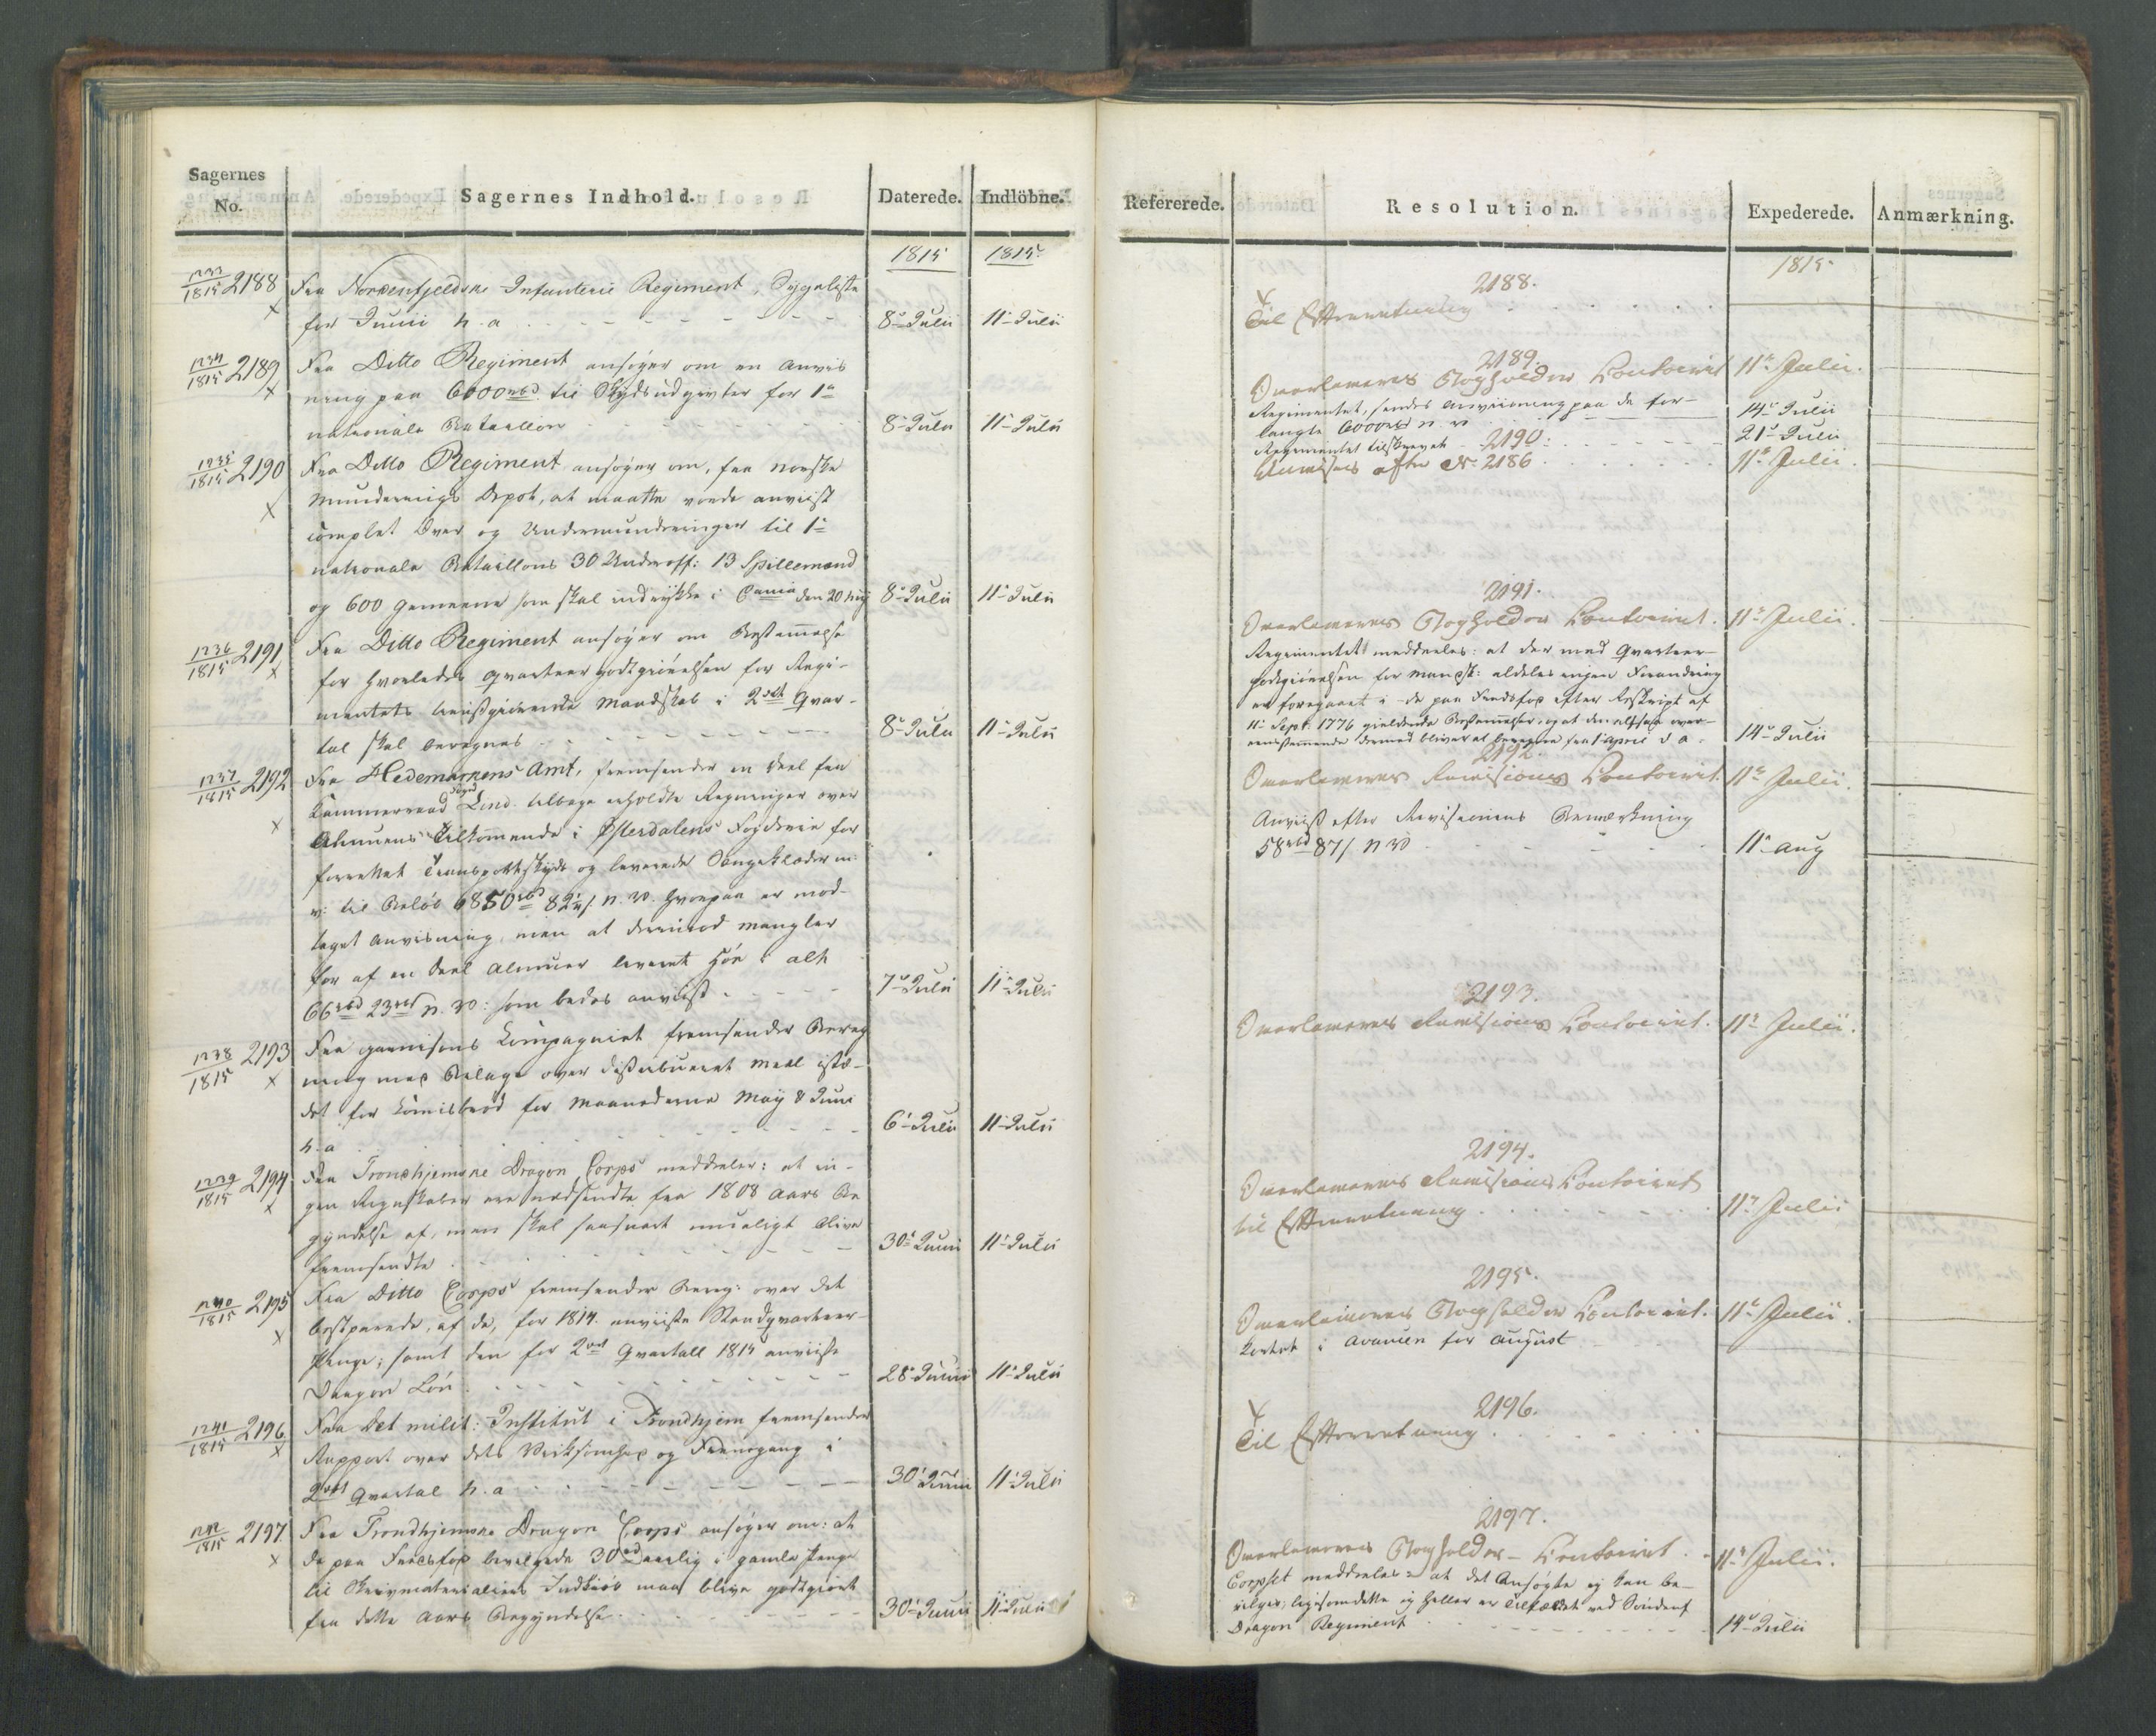 Sagernes
No.
Sagernes Indhold.
Daterede.
Indlöbne.
1815
1815
1233/1815 2188
Fra Nordenfjeldske Infanterie Regiment, Sygeliste
for Junii h. a
8de Julii
11te Julii
1234/1815 2189
Fra Ditto Regiment ansøger om en Anvis
ning paa 6000 rbd til Skydsudgivter for 1te
nationale Bataillon
8de Julii
11te Julii
1235/1815 2190
Fra Ditto Regiment, ansøger om, fra norske
Munderings Depot, at maatte vorde anviist
complet Over og Undermunderinger til 1te
nationale Bataillons 30 Underoff: 13 Spillemænd
og 600 Gemeene som skal indrykke i den 20
8de Julii
11te Julii
1236/1815 2191
Fra Ditto Regiment ansøger om Bestemmelse
for hvorledes Qvarteergodtgiørelsen for Regi-
mentets Mandskab i 2det Qvar-
tal skal beregnes
8de Julii
11te Julii
1237/1815 2192
Fra Hedemarkens Amt, fremsender en Deel fra
Kammerraad Lind tilbage erholdte Regninger over
Almuens Tilkommende i Østerdalens Fogderie for
forrettet Transportskyds og leverede Sengeklæder m:
v: til Beløb 6850 rbd 82 n. v. hvorpaa er mod-
taget Anvisning, men at derimod mangler
for af en Deel Almuer leveret Høe i alt
66 rbd 23 n. v: som bedes anviist
7de Julii
11te Julii
1238/1815 2193
Fra Garnisons Compagniet fremsender Bereg
ning med Bilage over distribueret Meel istæ-
det for Commisbrød for Maanederne May & Juni
h. a
6te Julii
11te Julii
1239/1815 2194
Fra Trondhjemske Dragon Corps meddeler: at in-
gen Regnskaber ere nedsendte fra 1808 Aars Be
gyndelse af, men skal saasnart mueligt blive
fremsendte
30te Junii
11te Julii
1240/1815 2195
Fra Ditto Corps fremsender Bereg: over det
besparede, af de, for 1814 anviiste Standqvarteer-
Penge; samt den for 2det Qvartall 1815 anviiste
Dragon Løn
28de Junii
11te Julii
1241/1815 2196
Fra Det milit: Institut i Trondhjem fremsender
Rapport over dets Virksomhed og Fremgang i
2det Qvartal h. a
30te Junii
11te Julii
1242/1815 2197
Fra Trondhjemske Dragon Corps ansøger om: at
de paa Fredsfod bevilgede 30 rd aarlig i gamle Penge
til Skrivmaterialiers Indkiøb maa blive godtgiort
fra dette Aars Begyndelse
30te Junii
11te Julii
Refererede.
Resolution.
Expederede.
Anmærkning.
1815
2188.
Til Efterretning
2189.
Overkrigs Bogholder Contoiret
11te Julii.
Regimentet, sendes Anviisning paa de for-
langte 6000 rbd n. v.
14de Julii
Regimentet tilskrevet
21de Julii
2190.
Ansees efter No 2186
11te Julii.
2191.
Bogholder Contoiret.
11te Julii.
Regimentet meddeeles: at der med Qvarteer-
godtgiørelsen for Mandsk: aldeles ingen Forandring
er foregaaet i de paa Fredsfod efter Rescript af
11te Sept. 1776 gieldende Bestemmelser, og at den altsaa over-
eenstemmende dermed bliver at beregne fra 1 April d. a.
14de Julii
2192.
Revisions Contoiret.
11te Julii.
Anviist efter Revisionens Bemærkning
58 rbd 87 s n v
11te Aug
2193.
Revisions Contoiret.
11te Julii.
2194.
Revisions Contoiret
til Efterretning
11te Julii
2195.
Bogholder Contoiret.
11te Julii.
kortet i Avancen for August
2196.
Til Efterretning
2197.
Bogholder-Contoiret
11te Julii.
Corpset meddeeles: at det Ansøgte ej kan be-
vilges; ligesom dette ej heller er Tilfældet ved Søndenf
Dragon Regiment
14de Julii